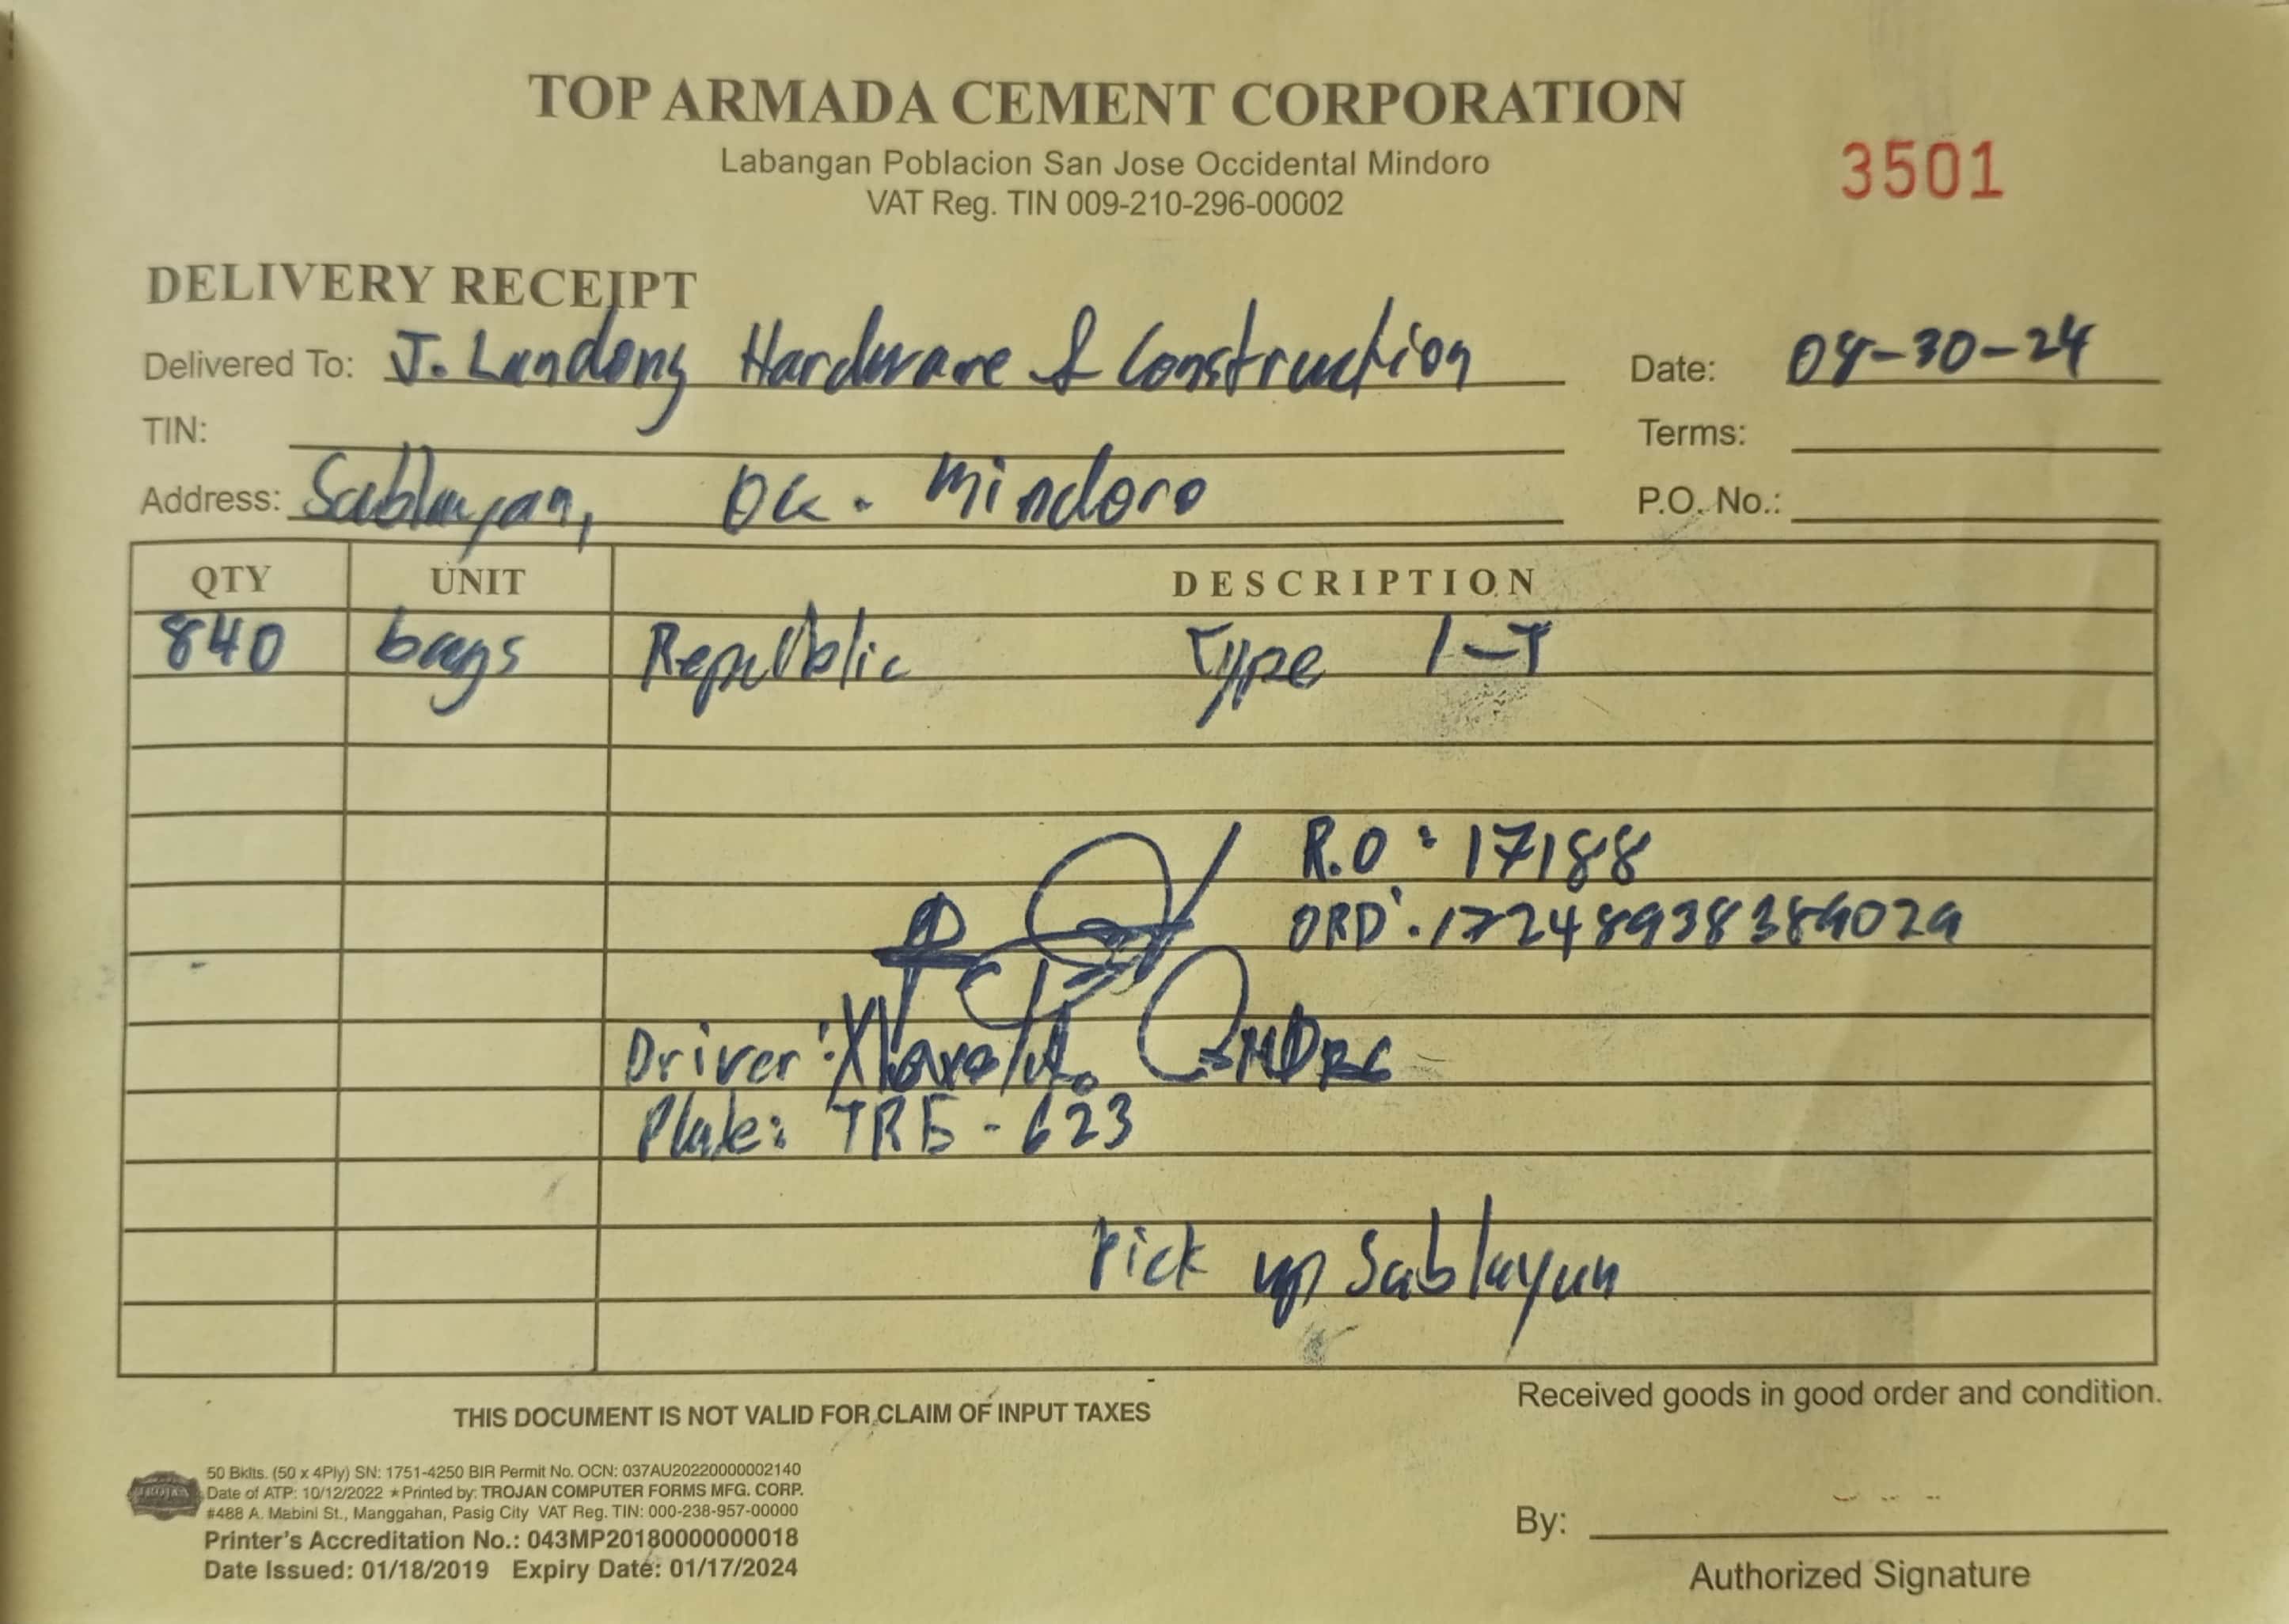 TOP ARMADA CEMENT CORPORATION
Labangan Poblacion San Jose Occidental Mindoro
VAT Reg. TIN 009-210-296-00002
3501
DELIVERY RECEIPT
Delivered To: J. Landong Hardware & Construction Date: 08-30-24
TIN: Terms:
Address: Sablayan, Occ. Mindoro P.O. No.:
QTY UNIT DESCRIPTION
840 bags Republic Type 1-T
R.O: 17188
ORD:
Driver:
Plate: - 623
Pick up Sablayan
THIS DOCUMENT IS NOT VALID FOR CLAIM OF INPUT TAXES
Received goods in good order and condition.
50 Bklts. (50 x 4Ply) SN: 1751-4250 BIR Permit No. OCN: 037AU20220000002140
Date of ATP: 10/12/2022 ★ Printed by: TROJAN COMPUTER FORMS MFG. CORP.
#488 A. Mabini St., Manggahan, Pasig City VAT Reg. TIN: 000-238-957-00000
Printer's Accreditation No.: 043MP20180000000018
Date Issued: 01/18/2019 Expiry Date: 01/17/2024
By:
Authorized Signature